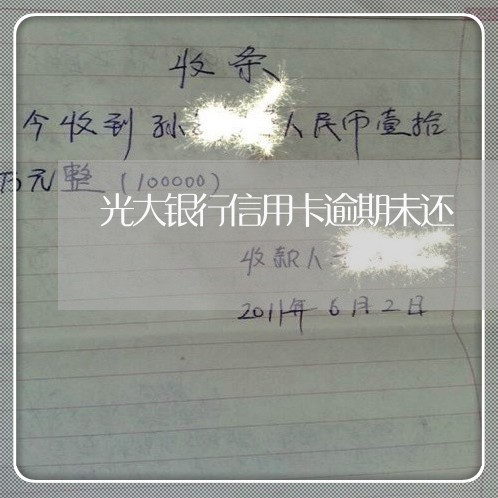 收条
今收到孙 人民币壹拾
万元整(100000)
光大银行信用卡逾期未还
收款人
2011年6月2日